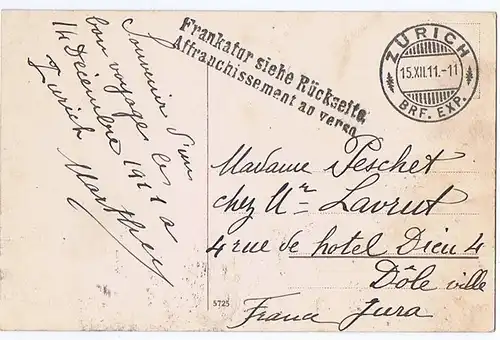 Souvenir d'un
bon voyage le
14 Décembre 1911 a
Zurich Marthey
Frankatur siehe Rückseite.
Affranchissement au verso
ZÜRICH
15.XII.11.-11
BRF. EXP.
Madame Peschet
chez Mr Lavrut
4 rue de hotel Dieu 4
Dôle ville
France Jura
5725